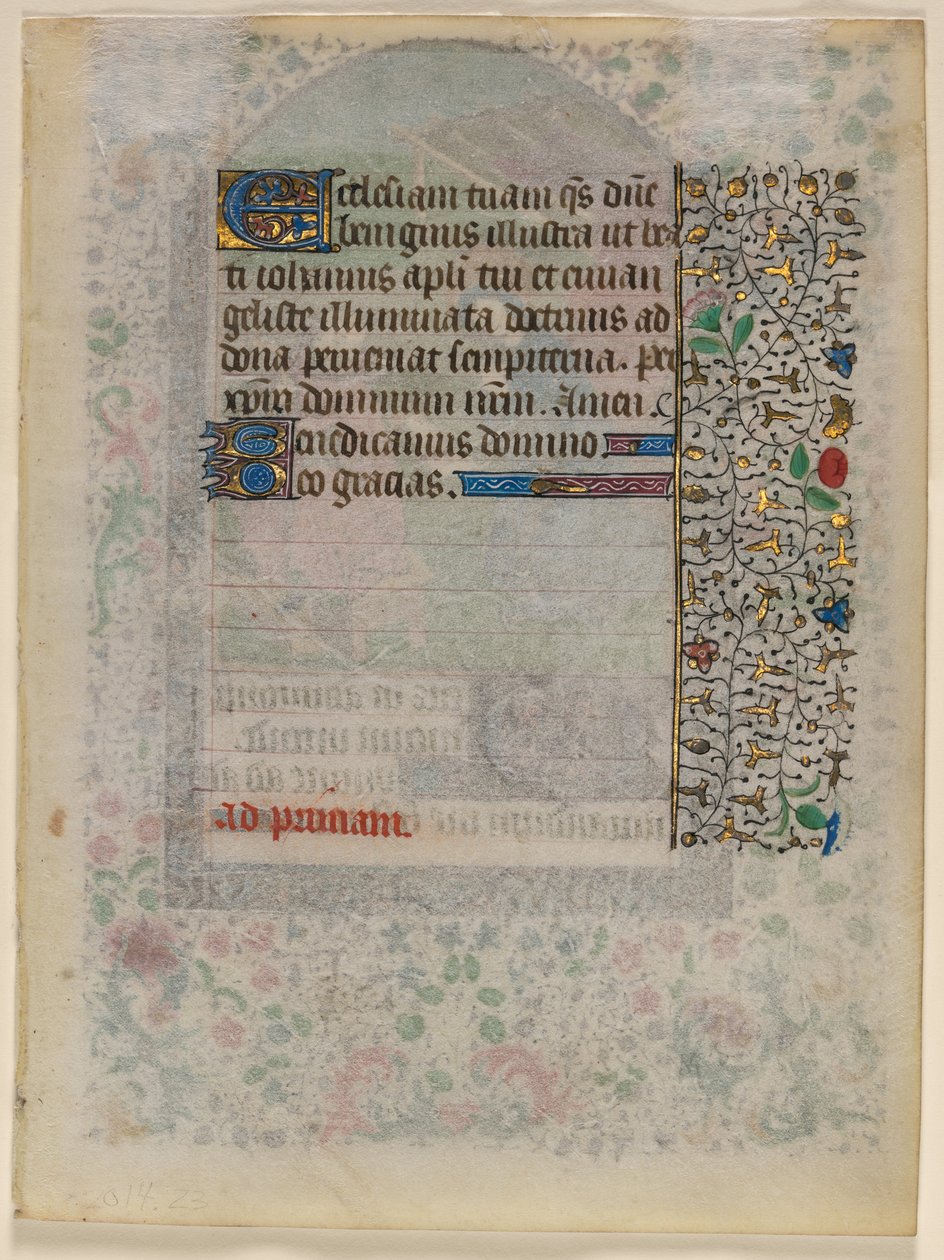 Ecclesiam tuam q̄s dn̄e
benignus illustra ut bea
ti iohannis apl̄i tui et euuan
geliste illuminata doctrinis ad
dona perueniat sempiterna. Per
xp̄m dominum nr̄m. Amen.
Benedicamus domino
Deo gracias.
Ad primam.
014.23